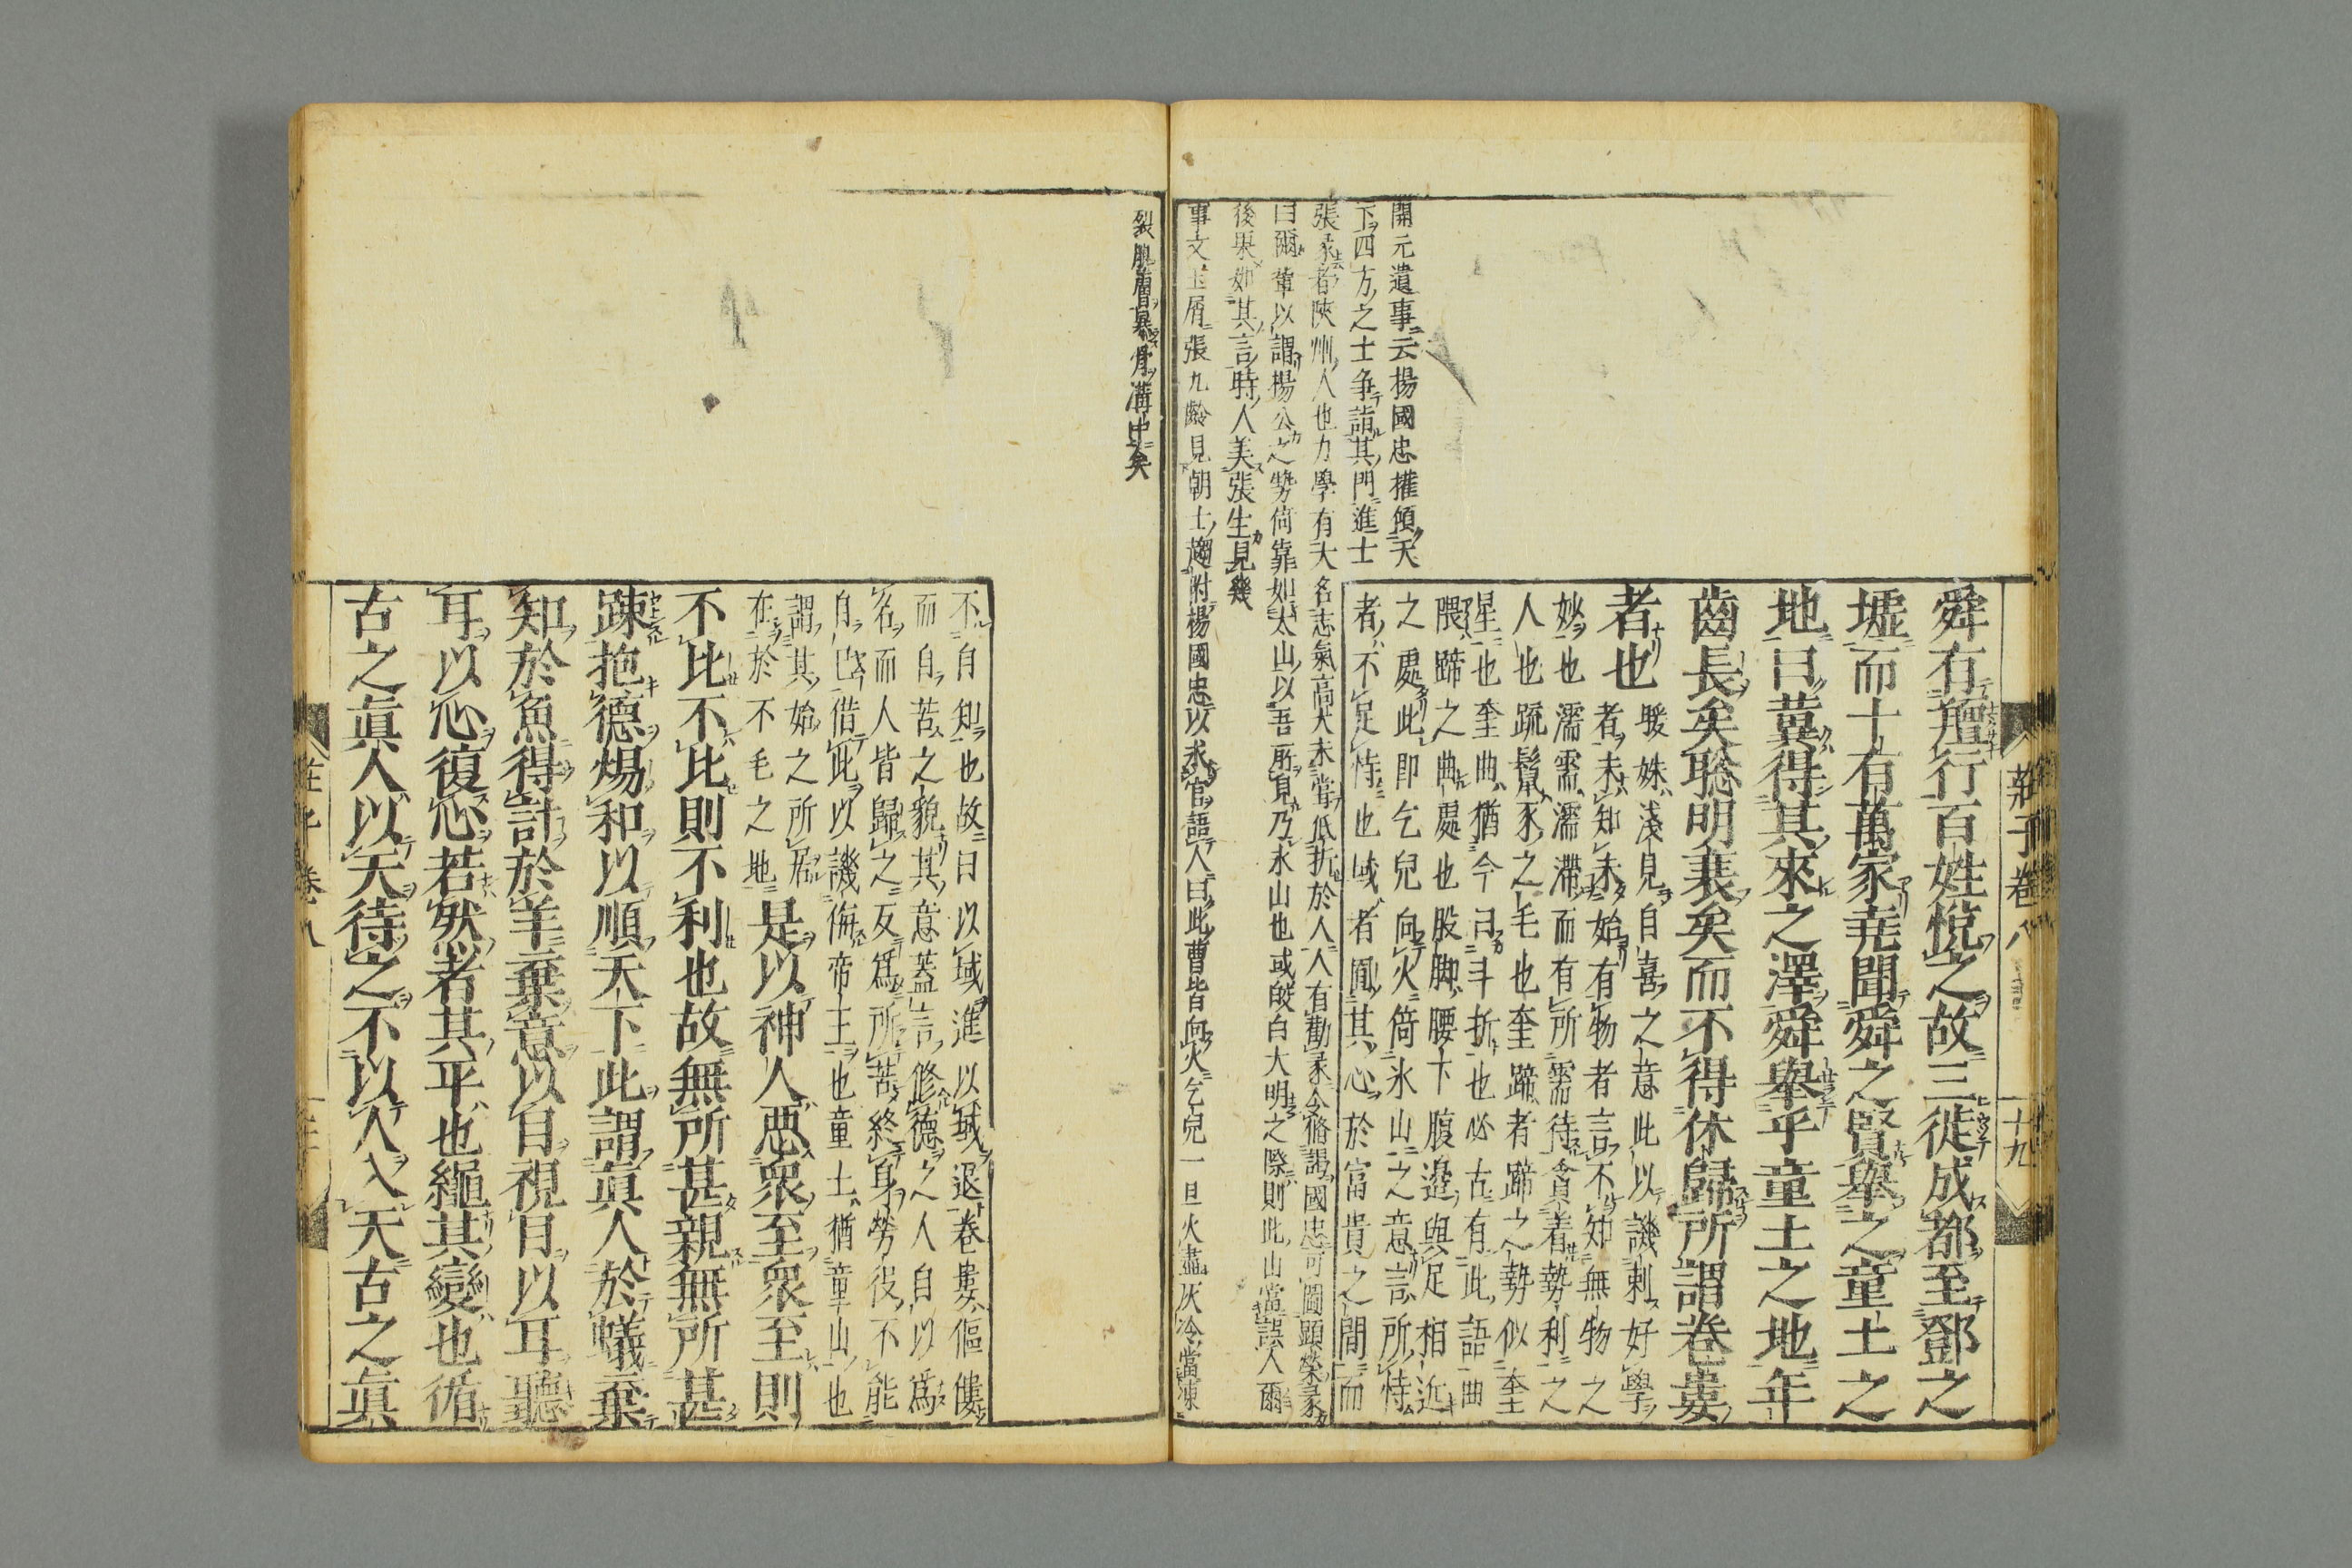 莊子卷八
十九
舜有羶行百姓悅之故三徙成都至鄧之
墟而十有萬家堯聞舜之賢舉之童土之
地曰蓂得其來之澤舜舉乎童土之地年
齒長矣聡明衰矣而不得休歸所謂卷婁
者也
暖姝淺見自喜之意此以譏刺好學
者未知未始有物者言不知無物之
妙也濡需濡滯而有所需待貪着勢利之
人也疏鬣豕之毛也奎蹄者蹄之勢似奎
星也奎曲猶今言斗折也必古有此語曲
隈蹄之曲處也股脚腰下腹邊與足相近
之處此即乞兒向火倚氷山之意言所恃
者不足恃也域者囿其心於富貴之間而
開元遺事云楊國忠權傾天
下四方之士争詣其門進士
張彖者陝州人也力學有大名志氣高大未嘗低折於人人有勸彖令脩謁國忠可圖顕榮彖
曰爾輩以謂楊公之勢倚靠如太山以吾所見乃氷山也或皎白大明之際則此山當誤人爾
後果如其言時人美張生見幾
事文玉屑張九齡見朝士趨附楊國忠以求官語人曰此曹皆向火乞兒一旦火盡灰冷當凍
裂肌膚暴骨溝中矣
不自知也故曰以域進以域退卷婁傴僂
而自苦之貌其意蓋言修德之人自以為
名而人皆歸之反爲所苦終身勞役不能
自已借此以譏侮帝王也童土猶童山也
謂其始之所居
在於不毛之地是以神人惡衆至衆至則
不比不比則不利也故無所甚親無所甚
踈抱德煬和以順天下此謂眞人於蟻棄
知於魚得計於羊棄意以目視目以耳聽
耳以心復心若然者其平也繩其變也循
古之眞人以天待之不以人入天古之眞
莊子卷八